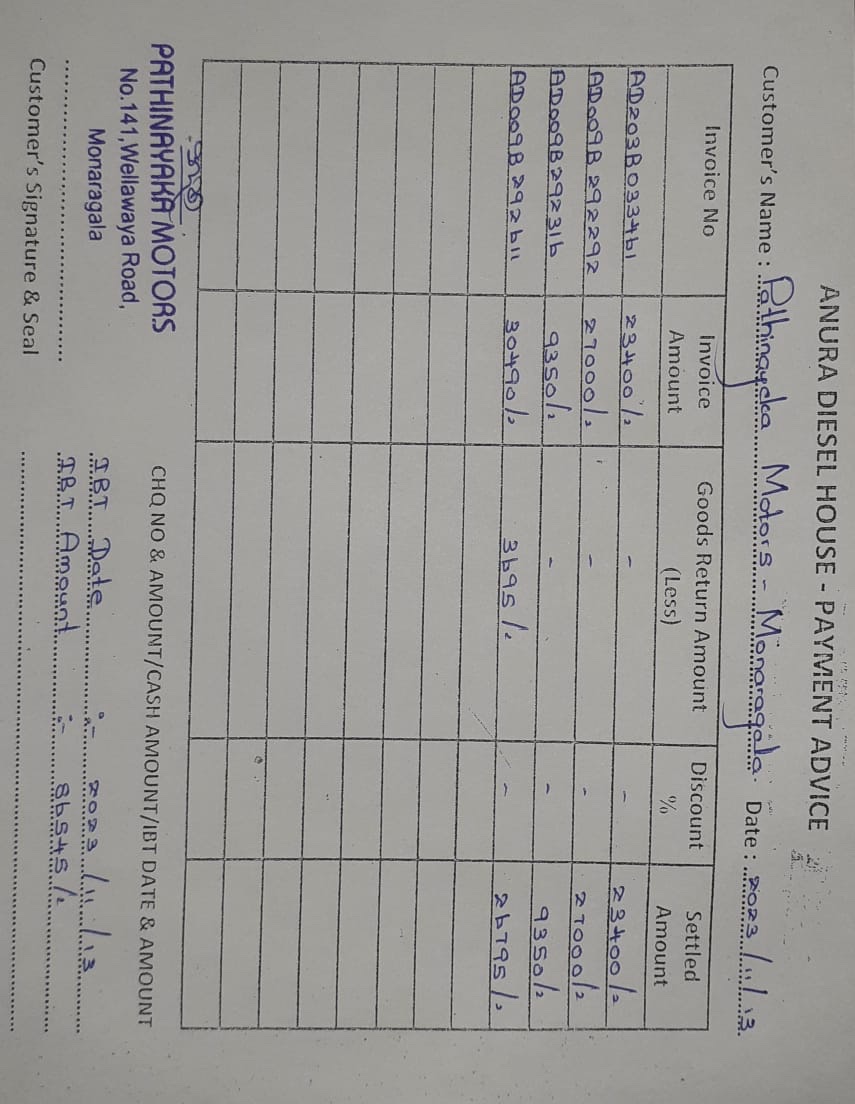 ANURA DIESEL HOUSE - PAYMENT ADVICE
Customer's Name : Pathinayaka Motors - Monaragala. Date : 2023/11/13.
Invoice No Invoice Amount Goods Return Amount (Less) Discount % Settled Amount
AD203B033461 23400/= - - 23400/=
AD009B292292 27000/= - - 27000/=
AD009B292316 9350/= - - 9350/=
AD009B292611 30490/= 3695/= - 26795/=
PATHINAYAKA MOTORS
No.141, Wellawaya Road,
Monaragala
Customer's Signature & Seal
CHQ NO & AMOUNT/CASH AMOUNT/IBT DATE & AMOUNT
IBT Date :- 2023/11/13
IBT Amount :- 86545/=